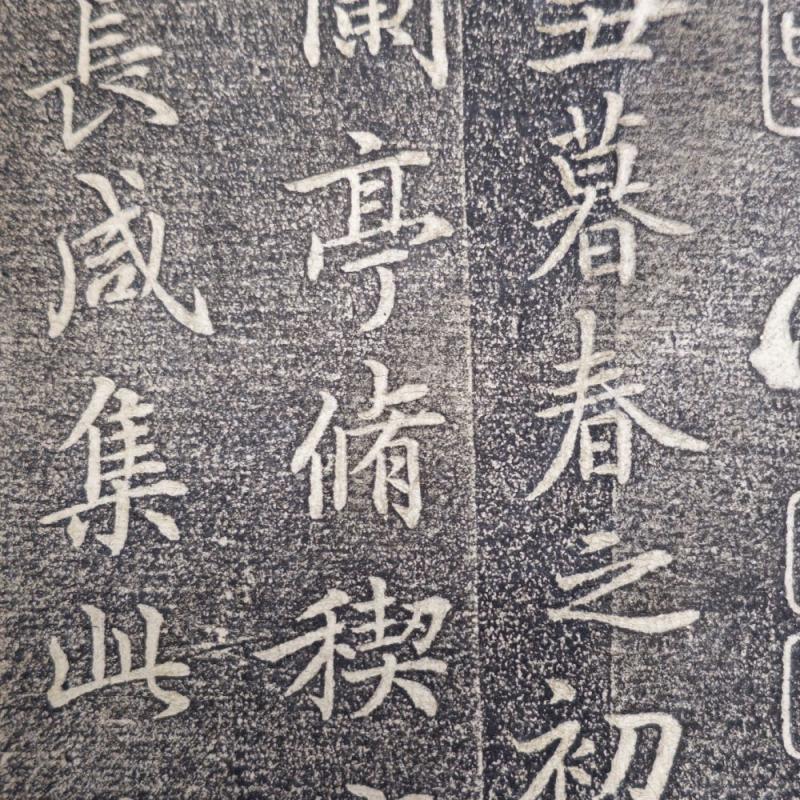 丑暮春之初
蘭亭脩稧
長咸集此